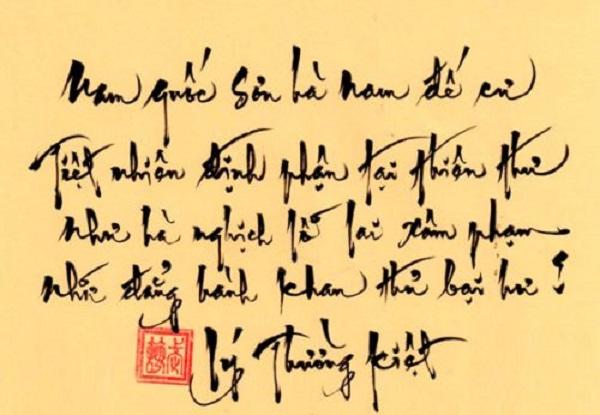 Nam quốc Sơn hà Nam đế cư
Tiệt nhiên định phận tại thiên thư
Như hà nghịch lỗ lai xâm phạm
Nhữ đẳng hành khan thủ bại hư !
Lý Thường Kiệt